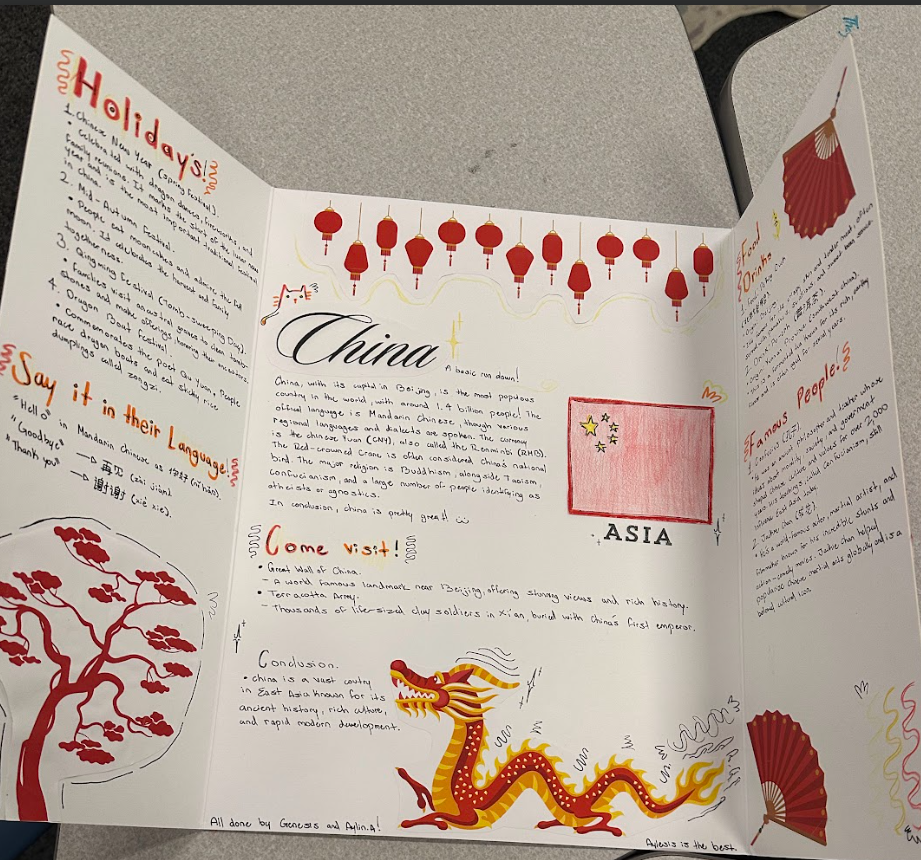 Holiday's!
1. Chinese New Year (Spring Festival).
• Celebrated with dragon dances, fireworks, and
family reunions. It marks the start of the lunar new
year and is the most important traditional holiday
in china.
2. Mid-Autumn Festival.
• People eat mooncakes and admire the full
moon. It celebrates the harvest and family
togetherness.
3. Qingming Festival (Tomb-Sweeping Day).
• Families visit ancestral graves to clean tomb-
stones and make offerings, honoring their ancestors.
4. Dragon Boat Festival.
• Commemorates the poet Qu Yuan, People
race dragon boats and eat sticky rice
dumplings called zongzi.
Say it in their Language!
"Hello" in Mandarin Chinese is 你好 (nǐ hǎo).
"Goodbye" → 再见 (zài jiàn)
"Thank you" → 谢谢 (xiè xie).
China
A basic run down!
China, with its capital in Beijing, is the most populous
country in the world, with around 1.4 billion people! The
official language is Mandarin Chinese, though various
regional languages and dialects are spoken. The currency
is the chinese Yuan (CNY), also called the Renminbi (RMB).
The Red-crowned Crane is often considered China's national
bird. The major religion is Buddhism, alongside Taoism,
Confucianism, and a large number of people identifying as
atheists or agnostics.
In conclusion, china is pretty great!
ASIA
Come visit!
• Great Wall of China.
- A world famous landmark near Beijing, offering stunning views and rich history.
• Terracotta Army.
- Thousands of life-sized clay soldiers in Xi'an, buried with Chinas first emperor.
Conclusion.
• China is a vast country
in East Asia known for its
ancient history, rich culture,
and rapid modern development.
All done by Genesis and Aylin.A!
Aylesis is the best.
Food
Drinks
Famous People!
1. Confucius
philosopher and teacher whose
ideas about morality, society and government
shaped chinese culture and values for over 2,000
years. His teachings, called Confucianism, still
influence East Asia today.
2. Jackie Chan
• He's a world famous actor, martial artist, and
filmmaker known for his incredible stunts and
action-comedy movies. Jackie chan helped
popularize Chinese martial arts globally and is a
beloved cultural icon.